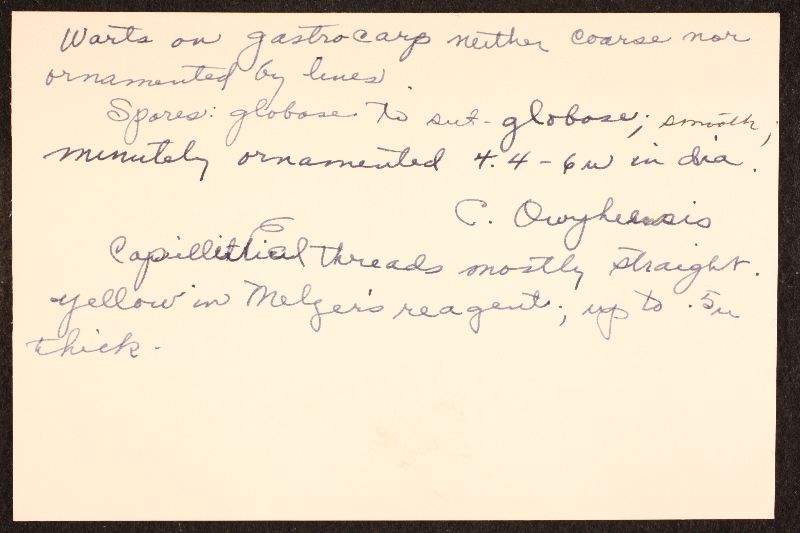 Warts on gastrocarp neither coarse nor
ornamented by lines
Spores: globose to sub-globose; smooth;
minutely ornamented 4.4-6u in dia.
C. Owyheensis
Capillitial threads mostly straight.
yellow in Melzer's reagent; up to .5u
thick.